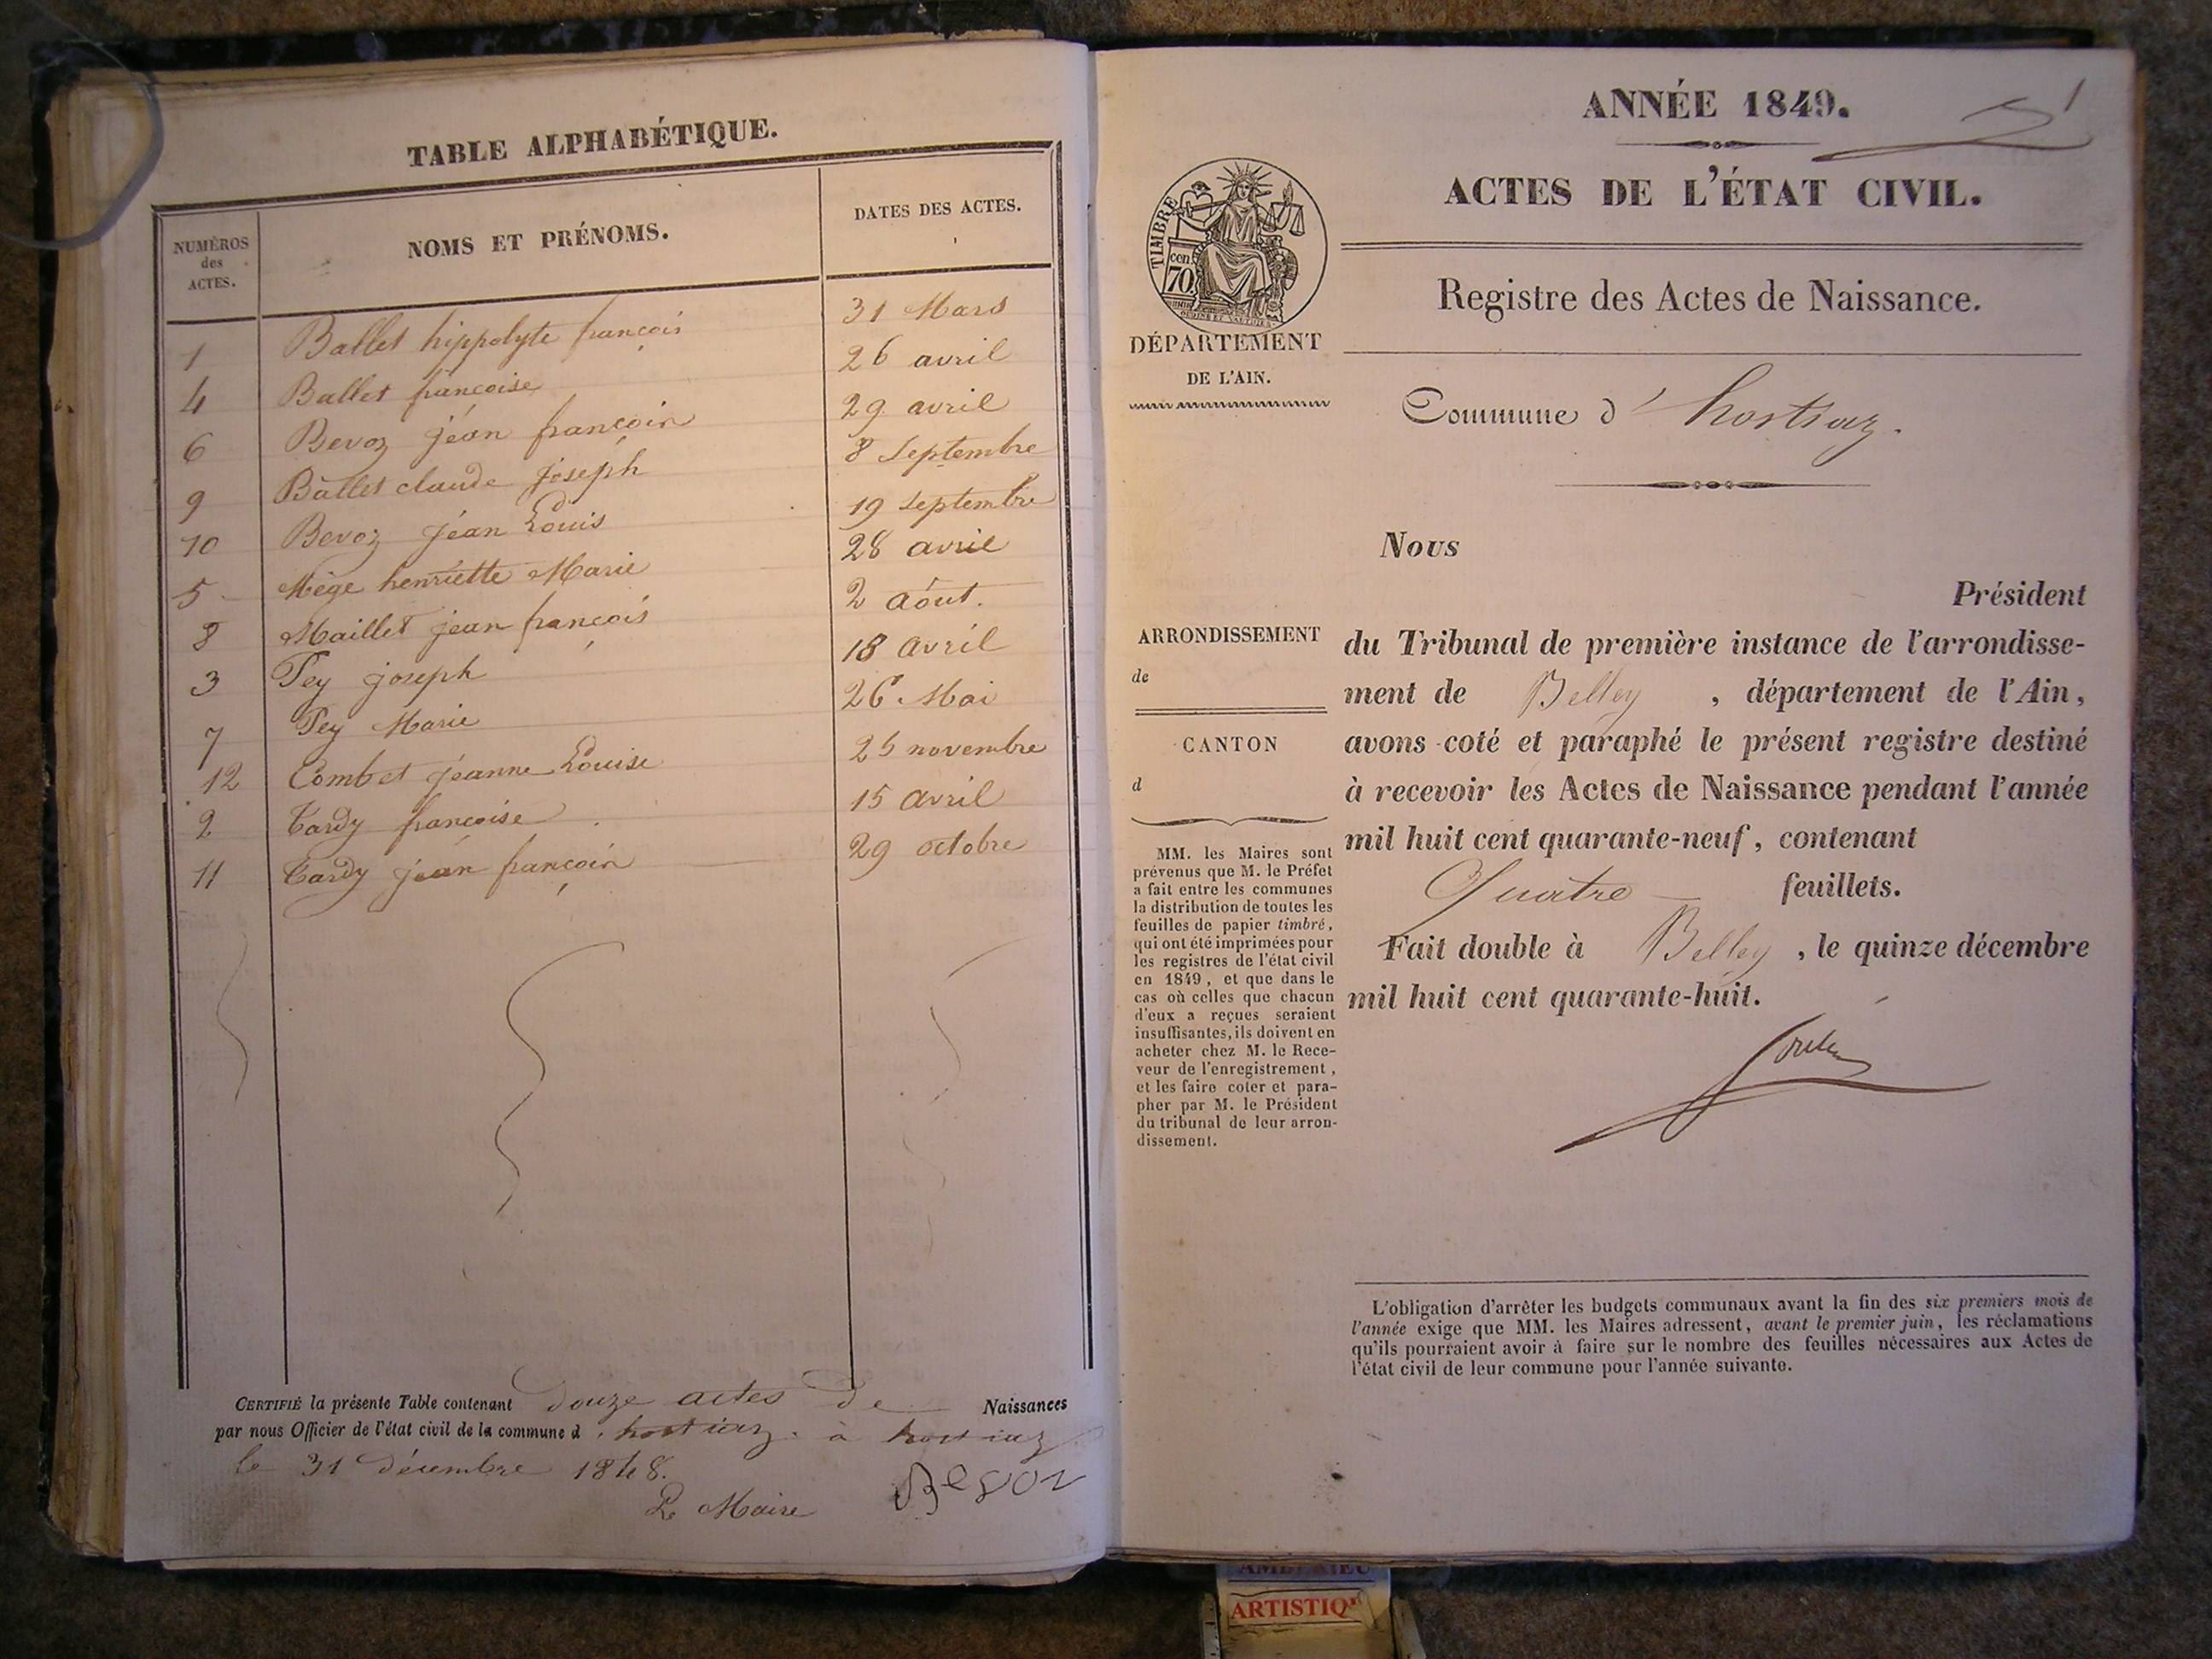 TABLE ALPHABÉTIQUE.
NUMÉROS des ACTES. NOMS ET PRÉNOMS. DATES DES ACTES.
1 Ballet hippolyte françois 31 Mars
4 Ballet françoise 26 avril
6 Bevoz jéan françois 29 avril
9 Ballet claude joseph 8 Septembre
10 Bevoz jéan Louis 19 Septembre
5 Mège henriette Marie 28 avril
8 Maillet jean françois 2 août.
3 Pey joseph 18 avril
7 Pey Marie 26 Mai
12 Combet jeanne Louise 25 novembre
2 Tardy françoise 15 avril
11 Tardy jean françois 29 octobre
CERTIFIÉ la présente Table contenant Douze actes de Naissances
par nous Officier de l'état civil de la commune d'hostiaz. à hostiaz
le 31 décembre 1848.
Le Maire Bevoz
1
ANNÉE 1849.
ACTES DE L'ÉTAT CIVIL.
TIMBRE
70 cen.
DÉPARTEMENT
DE L'AIN.
Registre des Actes de Naissance.
Commune d'hostiaz.
Nous
Président
du Tribunal de première instance de l'arrondisse-
ment de Belley, département de l'Ain,
avons coté et paraphé le présent registre destiné
à recevoir les Actes de Naissance pendant l'année
mil huit cent quarante-neuf, contenant
Quatre feuillets.
Fait double à Belley, le quinze décembre
mil huit cent quarante-huit.
ARRONDISSEMENT
de
CANTON
d
MM. les Maires sont
prévenus que M. le Préfet
a fait entre les communes
la distribution de toutes les
feuilles de papier timbré,
qui ont été imprimées pour
les registres de l'état civil
en 1849, et que dans le
cas où celles que chacun
d'eux a reçues seraient
insuffisantes, ils doivent en
acheter chez M. le Rece-
veur de l'enregistrement,
et les faire coter et para-
pher par M. le Président
du tribunal de leur arron-
dissement.
L'obligation d'arrêter les budgets communaux avant la fin des six premiers mois de
l'année exige que MM. les Maires adressent, avant le premier juin, les réclamations
qu'ils pourraient avoir à faire sur le nombre des feuilles nécessaires aux Actes de
l'état civil de leur commune pour l'année suivante.
AMBÉRIEU
ARTISTIQ